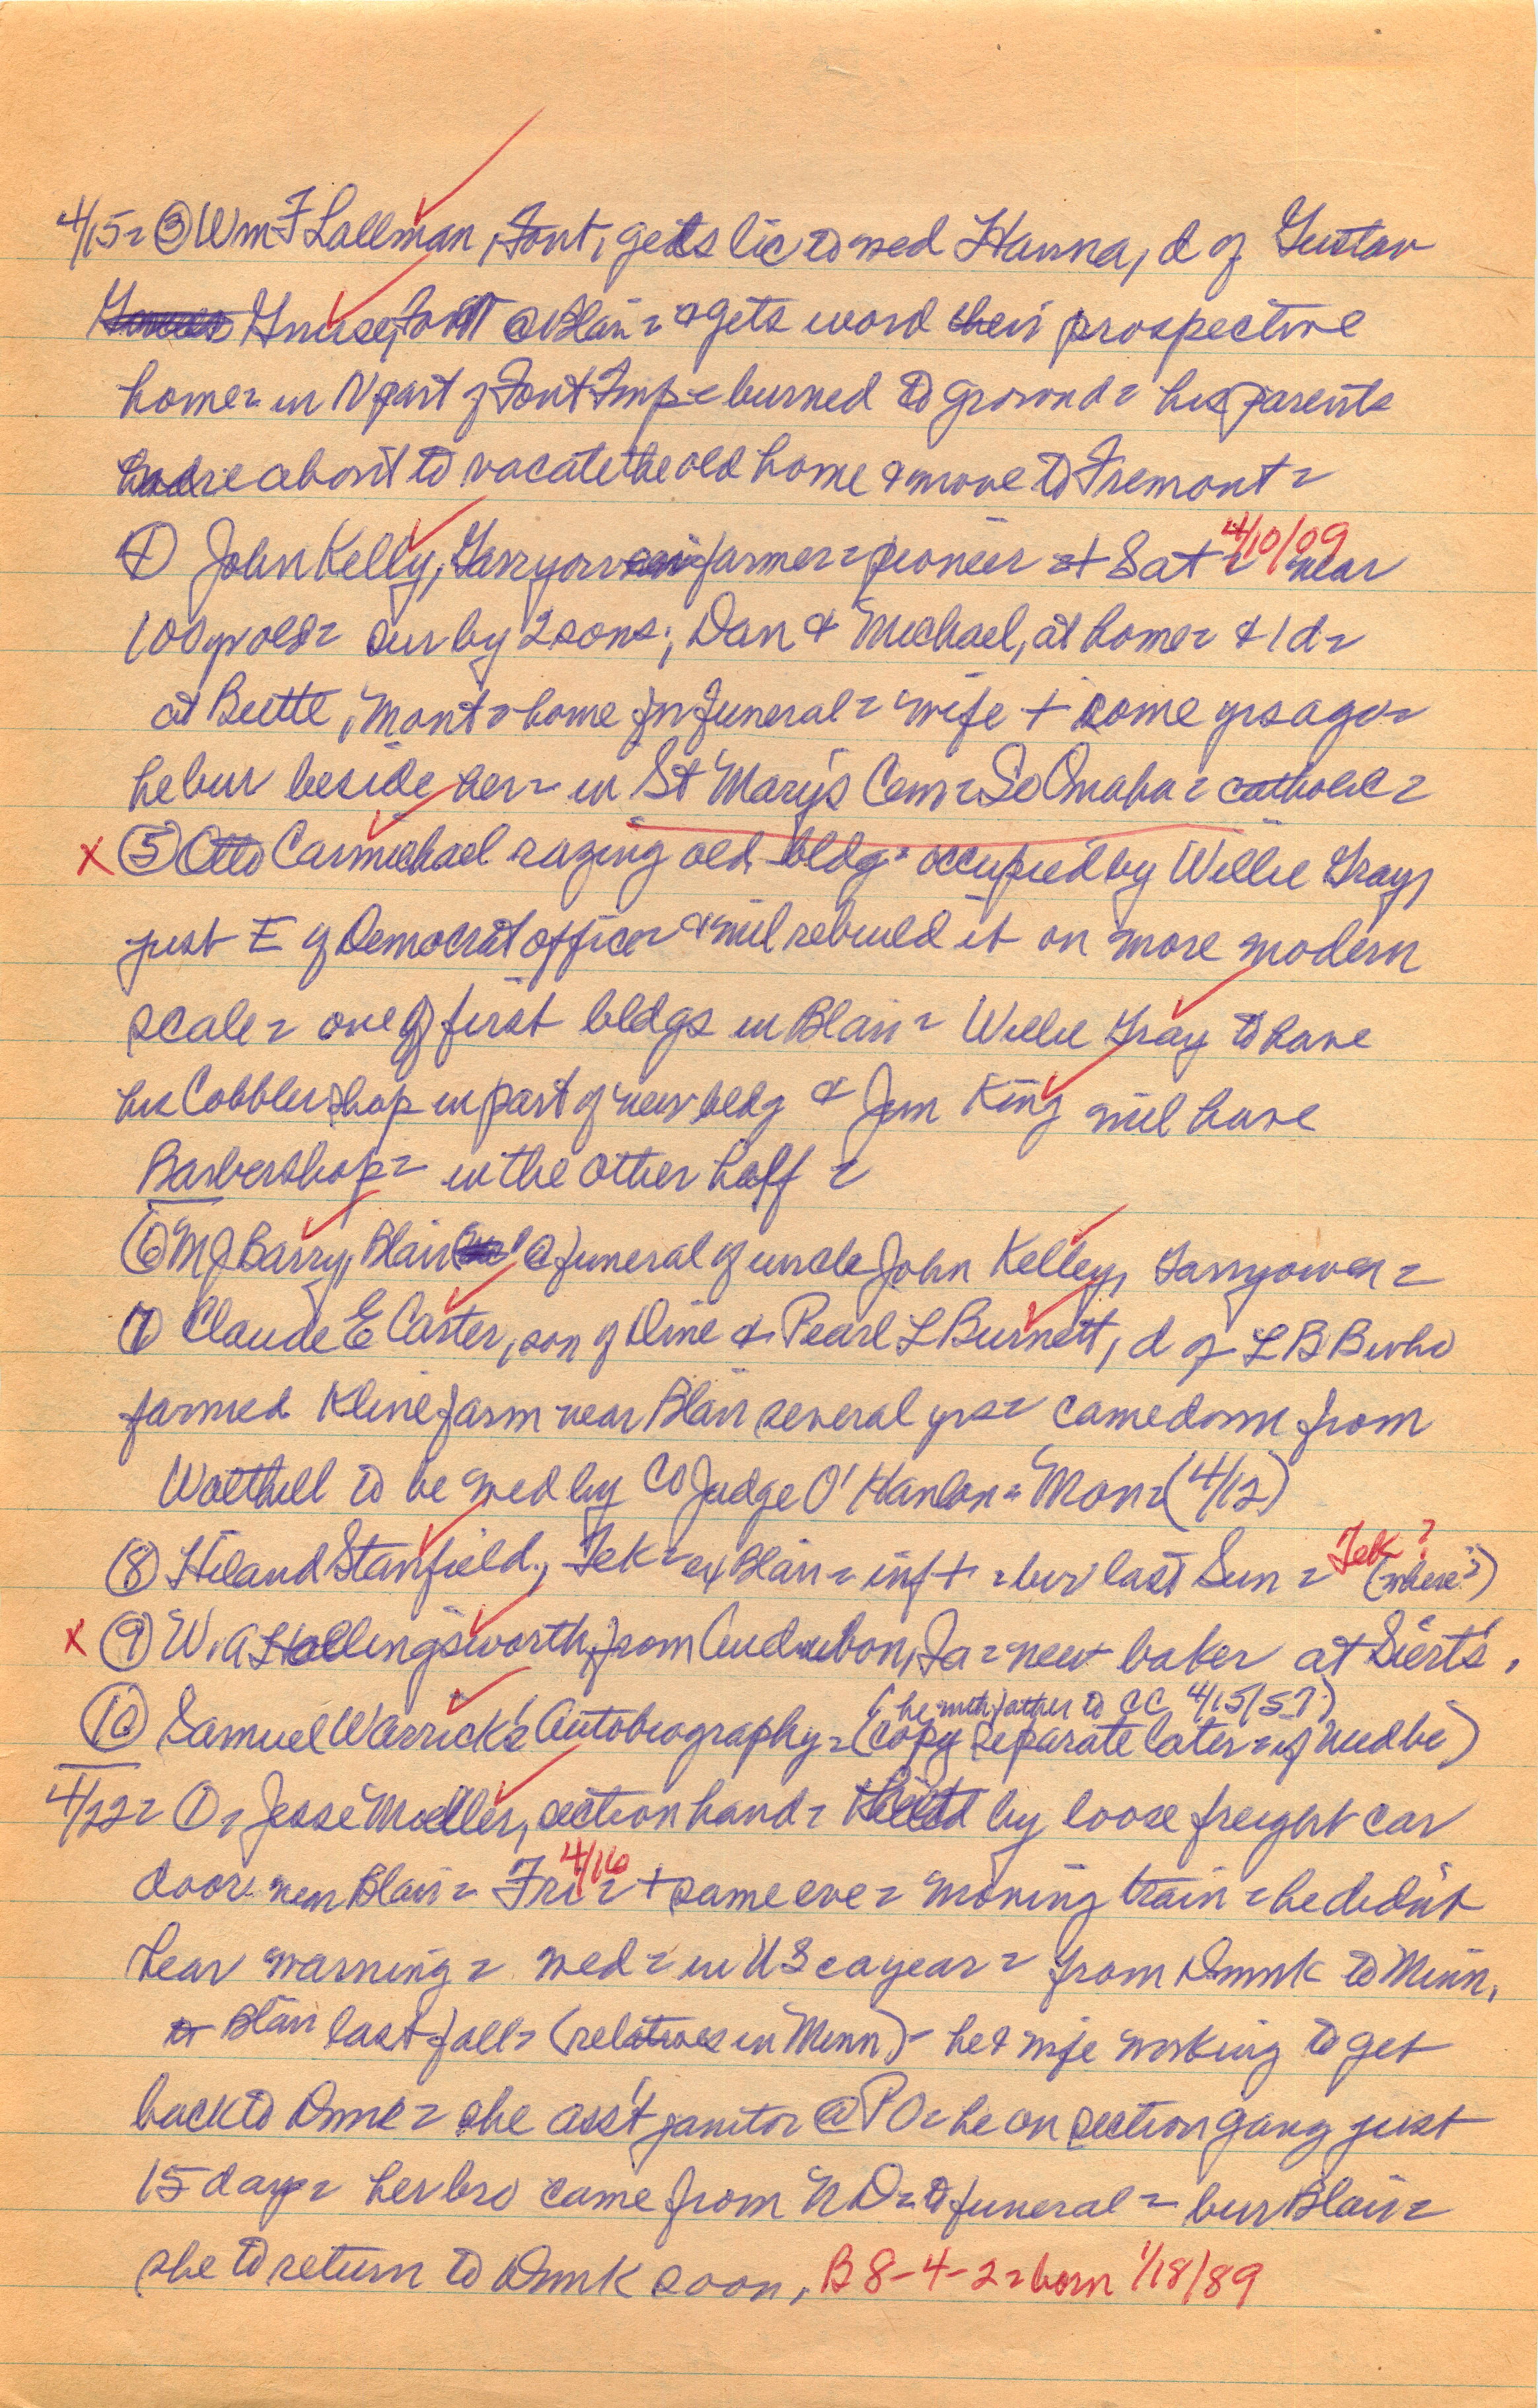 4/15 = ③ Wm F Lallman, Font, gets lic to wed Hanna, d of Gustav
Gnuse, Font @ Blair = & gets word their prospective
home = in N part of Font Tmp = burned to ground = his parents
were about to vacate the old home & move to Fremont =
④ John Kelly, Garryowen farmer = pioneer + Sat = 4/10/09 near
100 yr old = sur by 2 sons; Dan & Michael, at home = & 1 d =
at Butte, Mont = home for funeral = wife + some yrs ago =
he bur beside her = in St Mary's Cem = So Omaha = catholic =
x ⑤ Otto Carmichael razing old bldg = occupied by Willie Gray,
just E of Democrat office = & will rebuild it on more modern
scale = one of first bldgs in Blair = Willie Gray to have
his Cobbler shop in part of new bldg & Jim King will have
Barbershop = in the other half =
⑥ M J Barry, Blair @ funeral of uncle John Kelley, Garryowen =
⑦ Claude E Carter, son of Dine & Pearl L Burnett, d of L B B who
farmed Kline farm near Blair several yrs = came down from
Walthill to be wed by Co Judge O'Hanlon = Mon = (4/12)
⑧ Hiland Stanfield, Tek = ex Blair = inf + = bur last Sun = Tek? (where?)
x ⑨ W. A Hollingsworth, from Audubon, Ia = new baker at Sierts'.
(he with father to CC 4/15/57)
⑩ Samuel Warrick's Autobiography = (copy separate later = if need be)
4/22 = ① = Jesse Moeller, section hand = hit by loose freight car
door near Blair = Fri = 4/16 + same eve = moving train = he didn't
hear warning = wed = in US ca year = from Dmnk to Minn,
Blair last fall = (relatives in Minn) - he & wife working to get
back to Dmk = she ass't janitor @ PO = he on section gang just
15 days = her bro came from N D = to funeral = bur Blair =
she to return to Dmnk soon. B 8-4-2 = born 1/18/89